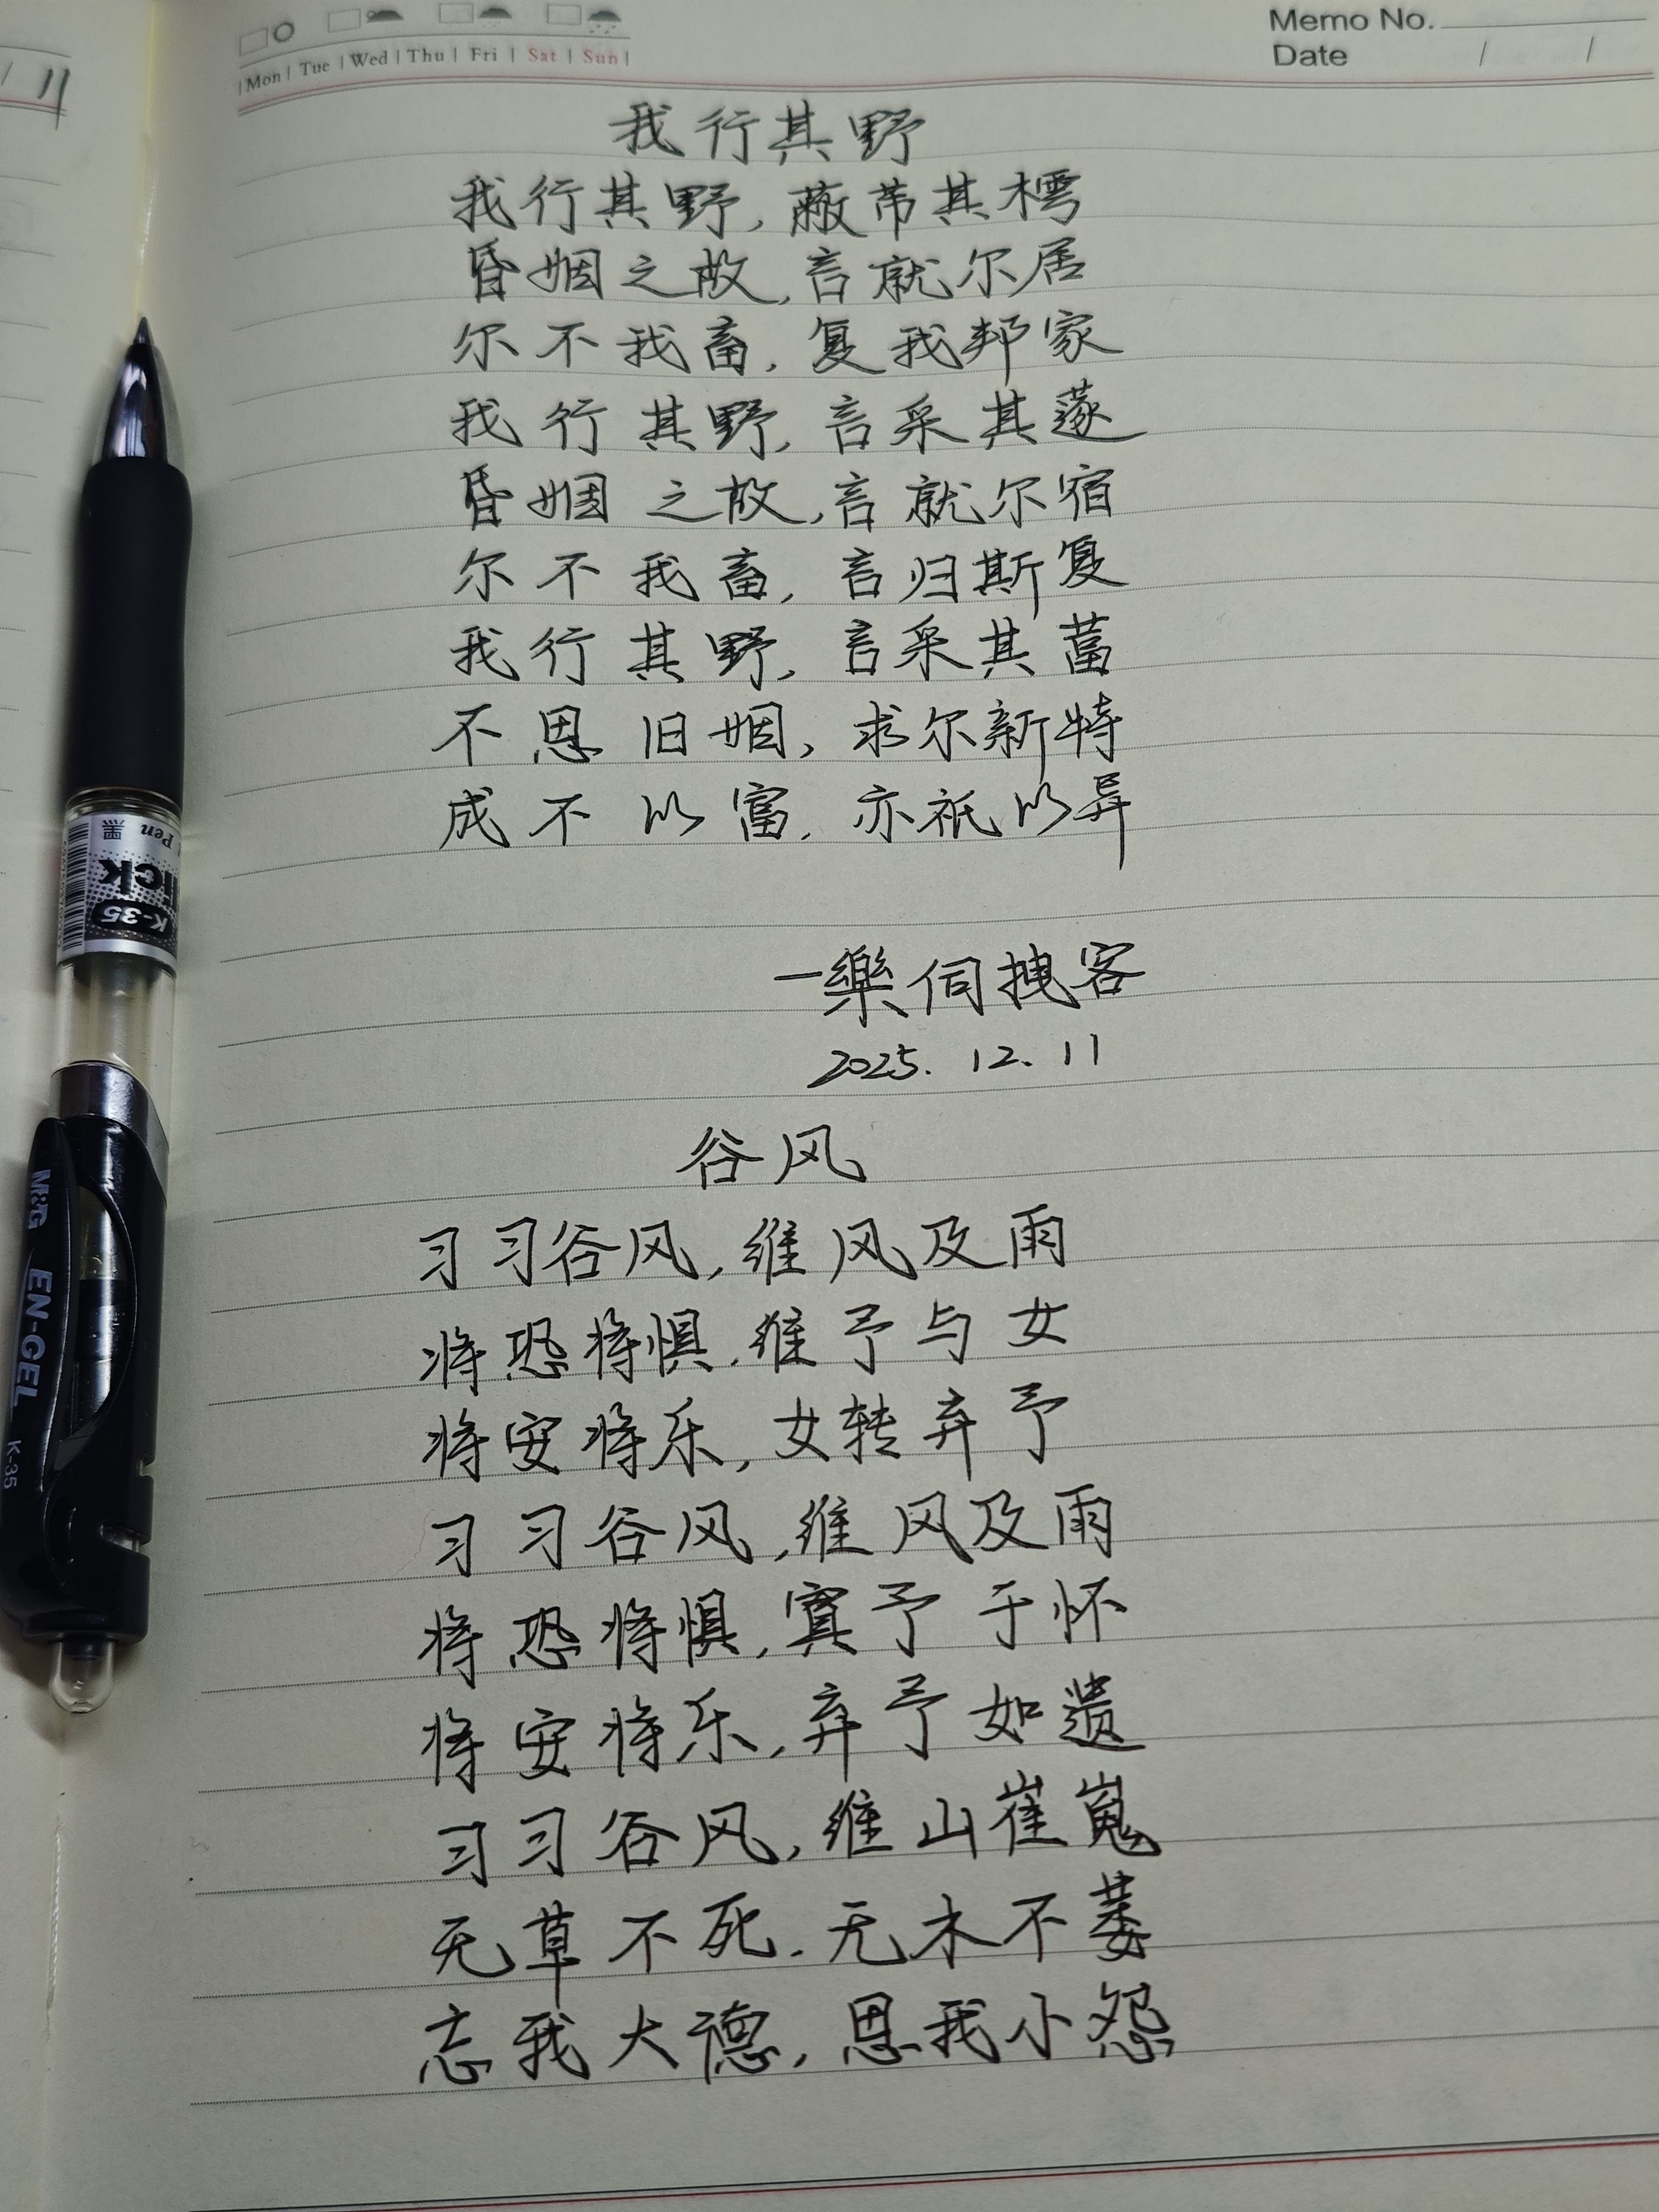 Memo No.
Date / /
Mon | Tue | Wed | Thu | Fri | Sat | Sun
/ 11
我行其野
我行其野,蔽芾其樗
昏姻之故,言就尔居
尔不我畜,复我邦家
我行其野,言采其蓫
昏姻之故,言就尔宿
尔不我畜,言归斯复
我行其野,言采其葍
不思旧姻,求尔新特
成不以富,亦祇以异
一樂伺拽客
2025.12.11
谷风
习习谷风,维风及雨
将恐将惧,维予与女
将安将乐,女转弃予
习习谷风,维风及雨
将恐将惧,寘予于怀
将安将乐,弃予如遗
习习谷风,维山崔嵬
无草不死.无木不萎
忘我大德,思我小怨
Pen 黑
ick
K-35
M&G EN-GEL K-35